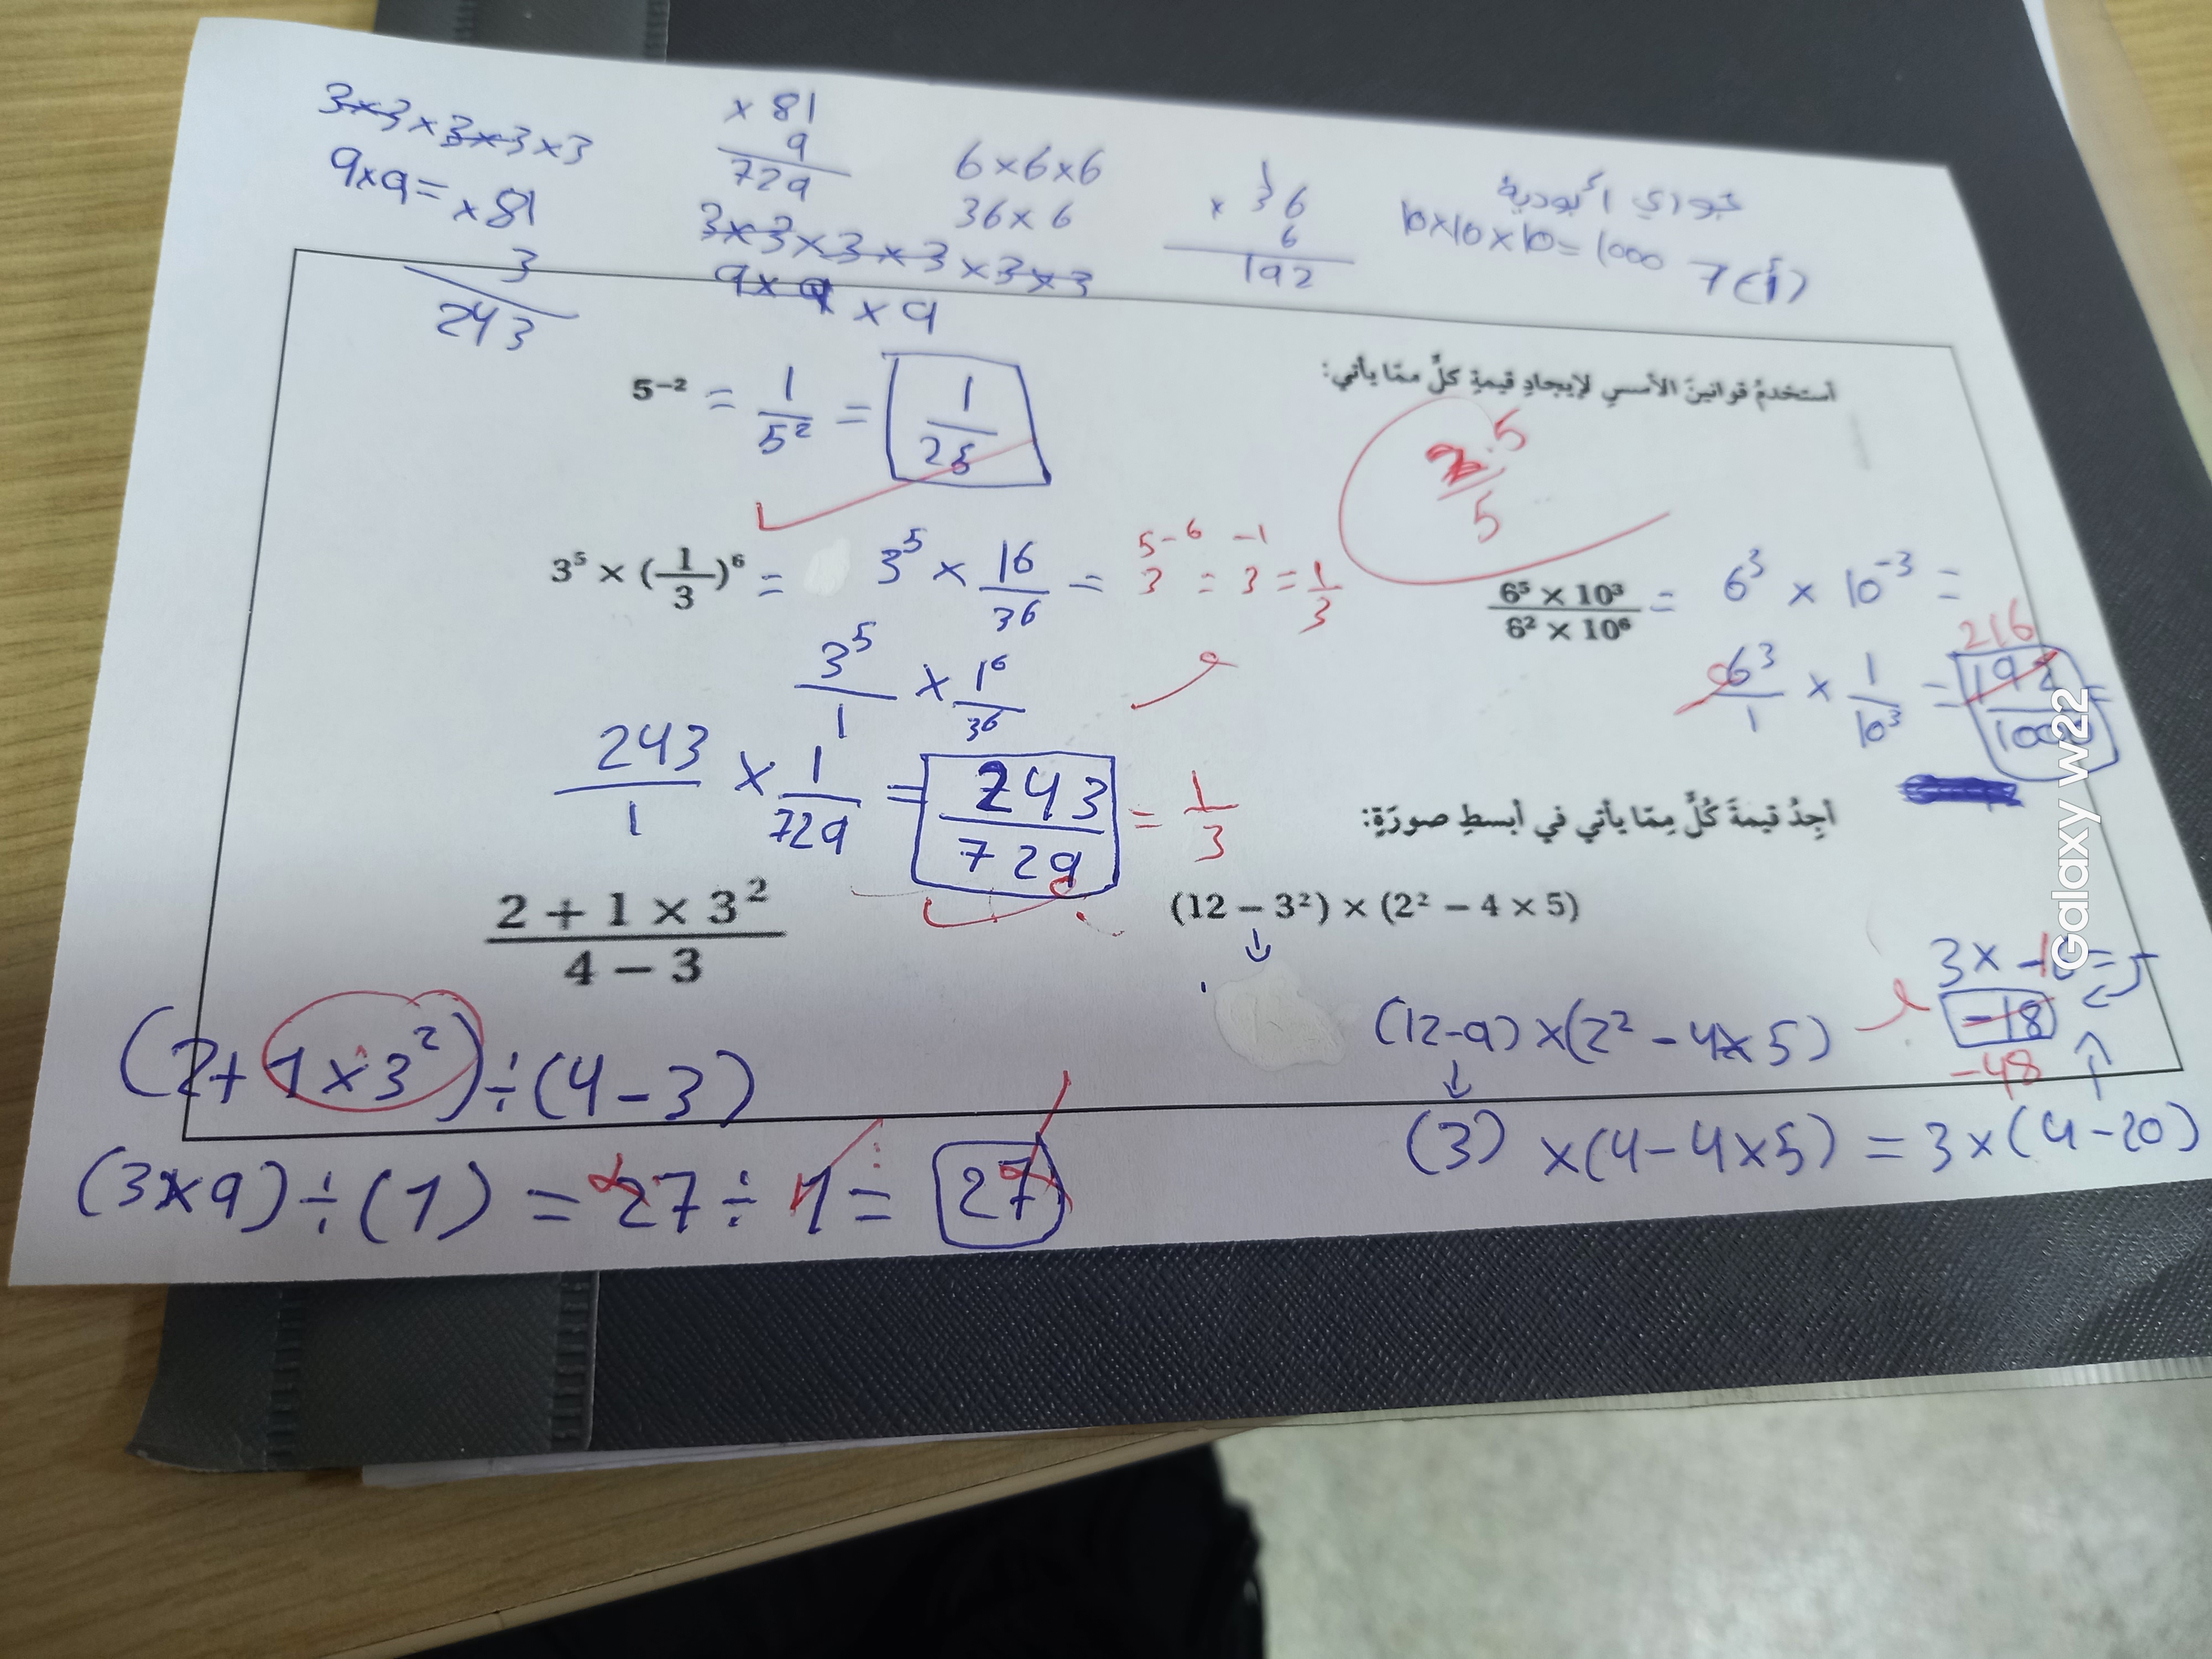 3×3×3×3×3
9×9= ×81
3
243
× 81
9
729
3×3×3×3×3×3
9×9×9
6×6×6
36×6
3
× 36
6
192
جوري
10×10×10=1000
7(أ)
أستخدمُ قوانينَ الأسسِ لإيجادِ قيمةِ كلٍّ ممّا يأتي:
2.5/5
5⁻² = 1/5² = 1/25
3⁵ × (1/3)⁶ = 3⁵ × 1⁶/3⁶ = 3⁵⁻⁶ = 3⁻¹ = 1/3
3⁵/1 × 1⁶/3⁶
243/1 × 1/729 = 243/729 = 1/3
6⁵ × 10³/6² × 10⁶ = 6³ × 10⁻³ =
216
6³/1 × 1/10³ = 192/1000
أجِدُ قيمةَ كُلٍّ مِمّا يأتي في أبسطِ صورَةٍ:
(12 − 3²) × (2² − 4 × 5)
(12-9)×(2²-4×5)
(3) ×(4-4×5) = 3×(4-20)
-18
-48
2 + 1 × 3²/4 − 3
(2+1×3²)÷(4-3)
(3×9)÷(1) = 27÷1= 27
Galaxy w22